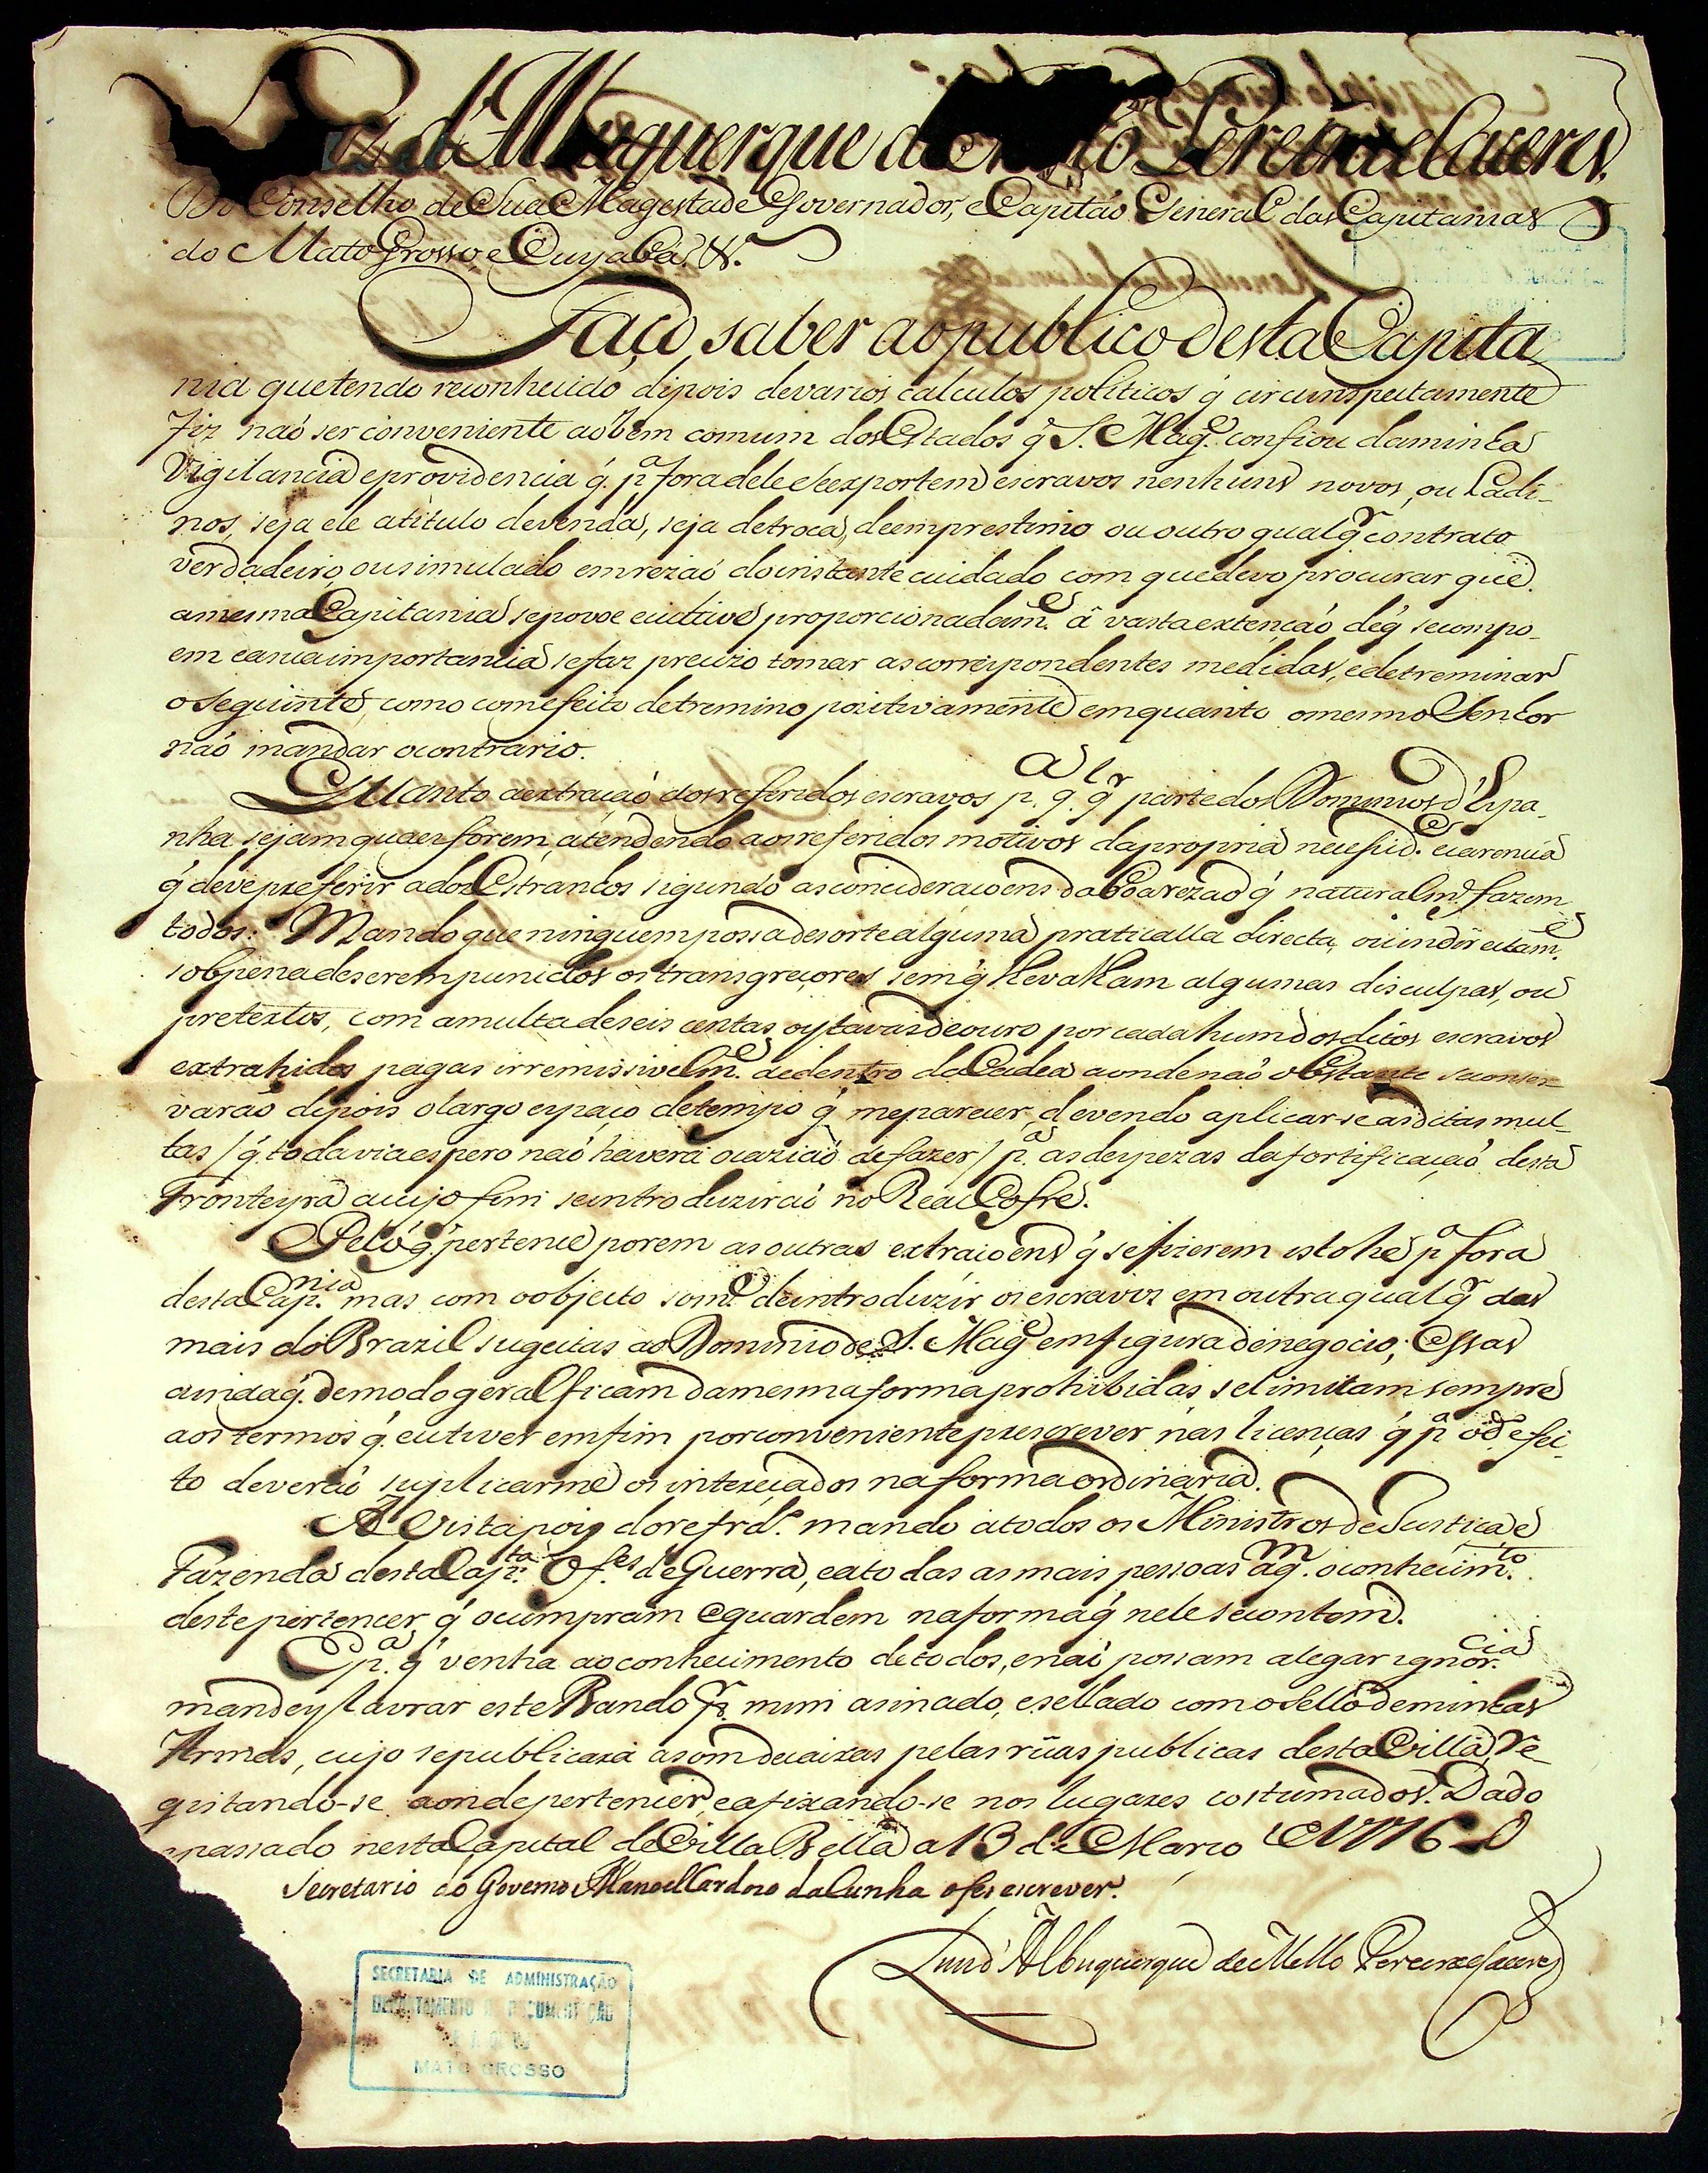 d'Albuquerque de Mello Pereira e Caceres.
Do Conselho de Sua Magestade Governador, e Capitaõ General das Capitanias
do Mato Grosso, e Cuyabá. &.
Faço saber ao publico desta Capita
nia que tendo reconhecido dipois de varios calculos politicos q̃ circunspectamente
Fiz naõ ser conveniente ao bem comum dos Estados q̃ S. Mag.e confiou da minha
Vigilancia e providencia q̃. p.a fora dele se exportem escravos nenhuns novos, ou Ladi-
nos, seja ele a titulo de venda, seja de troca, de emprestimo ou outro qualq̃r contrato
verdadeiro, ou simulado em rezaõ do instante cuidado com que devo procurar que
a mesma Capitania se povoe e cultive proporcionadam.e á vasta extençaõ de q̃ se compo-
em e a sua importancia se faz precizo tomar as correspondentes medidas, e detreminar
o seguinte, como com efeito detremino pozitivamente em quanto o mesmo Senhor
naõ mandar o contrario.
Quanto a extraçaõ dos referidos escravos p.a q.l q̃r parte dos Dominios d'Espa-
nha sejam quaes forem, atendendo aos referidos motivos da propria necessid.e e carencia
q̃ deve preferir a dos Estranhos sigundo as concideraçoens da boa rezaõ q̃ naturalm.e fazem
todos: Mando que ninguem possa de sorte alguma praticalla directa, ou indirectam.e
sob pena de serem punidos os transgreçores sem q̃ lhe valham algumas disculpas, ou
pretextos, com a multa de seis centas oytavas de ouro por cada hum dos ditos escravos
extrahidos pagas irremissivelm.e de dentro da Cadea aonde naõ obstante se conser
varaõ dipois o largo espaço de tempo q̃ me parecer, devendo aplicar-se as ditas mul-
tas /q̃. todavia espero naõ haverá ocaziaõ de fazer/ p.a as despezas da fortificaçaõ desta
Fronteyra a cujo fim se introduziraõ no Real Cofre.
Pelo q̃. pertence porem as outras extraçoens q̃ se fizerem isto he p.a fora
desta Cap.nia mas com o objecto som.e de introduzir os escravos em outra qualq̃r das
mais do Brazil sugeitas ao Dominio de S. Mag.e em figura de negocio; Essas
ainda q̃. de modo geral ficam da mesma forma prohibidas, se limitam sempre
aos termos q̃. eu tiver em fim por conveniente prescrever nas licenças q̃ p.a o d.o efei-
to deveraõ suplicarme os intereçados na forma ordinaria.
A Vista pois do refrd.o mando a todos os Ministros de Justiça e
Fazenda desta Cap.ta Of.es de Guerra, e a todas as mais pessoas a q̃.m o conhecim.to
deste pertencer, q̃ o cumpram e guardem na forma q̃ nele se contem.
E p.a q̃ venha ao conhecimento de todos, e naõ possam alegar ignor.cia
mandey lavrar este Bando p.r mim asinado, e sellado com o Sello de minhas
Armas, cujo se publicará a som de caixas pelas rûas publicas desta Villa, re-
gistando-se aonde pertencer, e afixando-se nos lugares costumados. Dado
e passado nesta Capital de Villa Bella a 13 de Março
Secretario do Governo Manoel Cardoso da Cunha o fes escrever.
Luis d'Albuquerque de Mello Pereira e Caceres
SECRETARIA DE ADMINISTRAÇÃO
DEPARTAMENTO DE DOCUMENTAÇÃO
MATO GROSSO